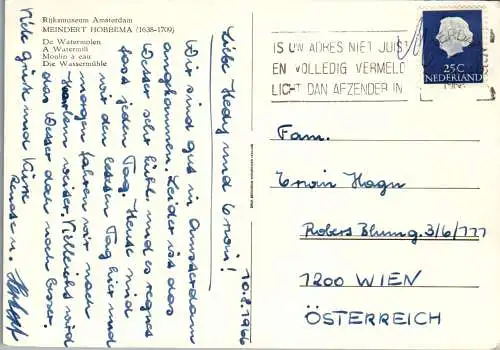 Rijksmuseum Amsterdam
MEINDERT HOBBEMA (1638-1709)
De Watermolen
A Watermill
Moulin à eau
Die Wassermühle
10.8.1966
Liebe Hedy und Erwin!
Wir sind gut in Amsterdam
angekommen. Leider ist das
Wetter sehr kühl und es regnet
fast jeden Tag. Heute sind
wir den letzten Tag hier und
morgen fahren wir nach
Haarlem weiter. Vielleicht wird
das Wetter dann noch besser.
Viele Grüße und Küsse
Renate u.
IS UW ADRES NIET JUIST
EN VOLLEDIG VERMELD
LICHT DAN AFZENDER IN
25C
NEDERLAND
Fam.
Erwin Hagn
Robert Blumg. 3/6/777
1200 WIEN
ÖSTERREICH